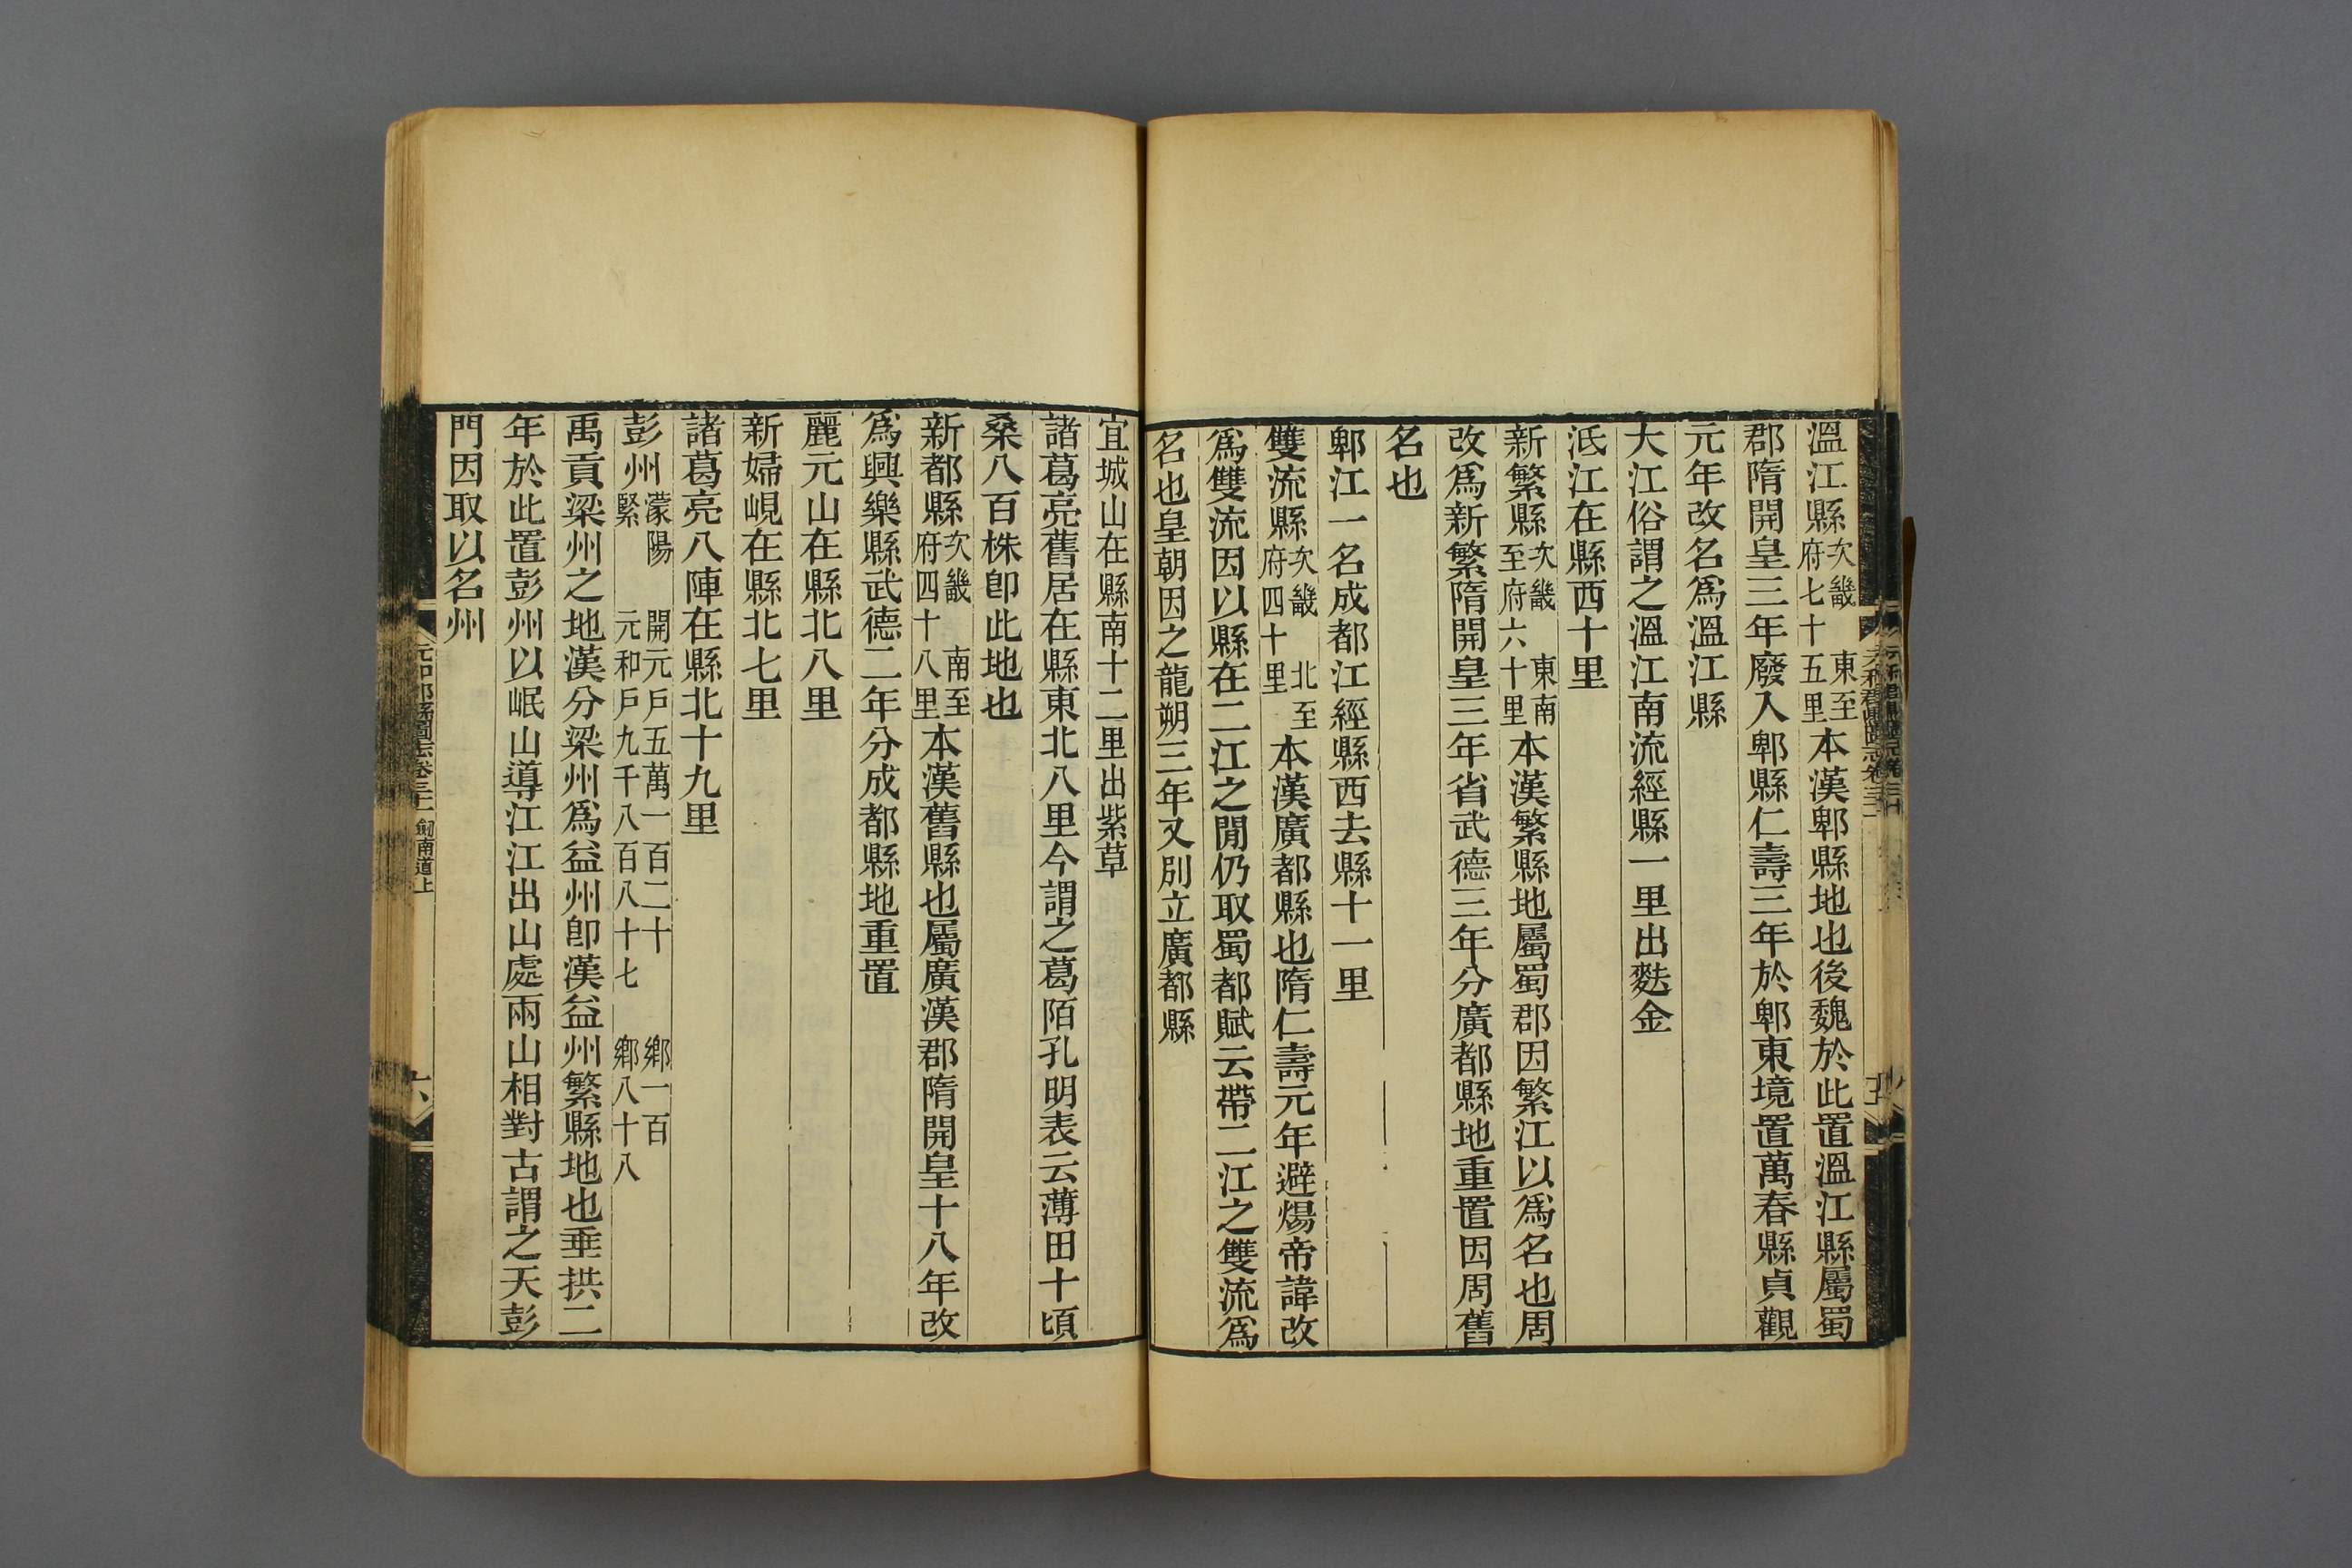 溫江縣次畿東至府七十五里本漢郫縣地也後魏於此置溫江縣屬蜀
郡隋開皇三年廢入郫縣仁壽三年於郫東境置萬春縣貞觀
元年改名爲溫江縣
大江俗謂之溫江南流經縣一里出麩金
汦江在縣西十里
新繁縣次畿東南至府六十里本漢繁縣地屬蜀郡因繁江以爲名也周
改爲新繁隋開皇三年省武德三年分廣都縣地重置因周舊
名也
郫江一名成都江經縣西去縣十一里
雙流縣次畿北至府四十里本漢廣都縣也隋仁壽元年避煬帝諱改
爲雙流因以縣在二江之閒仍取蜀都賦云帶二江之雙流爲
名也皇朝因之龍朔三年又別立廣都縣
宜城山在縣南十二里出紫草
諸葛亮舊居在縣東北八里今謂之葛陌孔明表云薄田十頃
桑八百株卽此地也
新都縣次畿南至府四十八里本漢舊縣也屬廣漢郡隋開皇十八年改
爲興樂縣武德二年分成都縣地重置
麗元山在縣北八里
新婦峴在縣北七里
諸葛亮八陣在縣北十九里
彭州濛陽緊開元戶五萬一百二十鄉一百元和戶九千八百八十七鄉八十八
禹貢梁州之地漢分梁州爲益州卽漢益州繁縣地也垂拱二
年於此置彭州以岷山導江江出山處兩山相對古謂之天彭
門因取以名州
元和郡縣圖志卷三十一 劍南道上
六